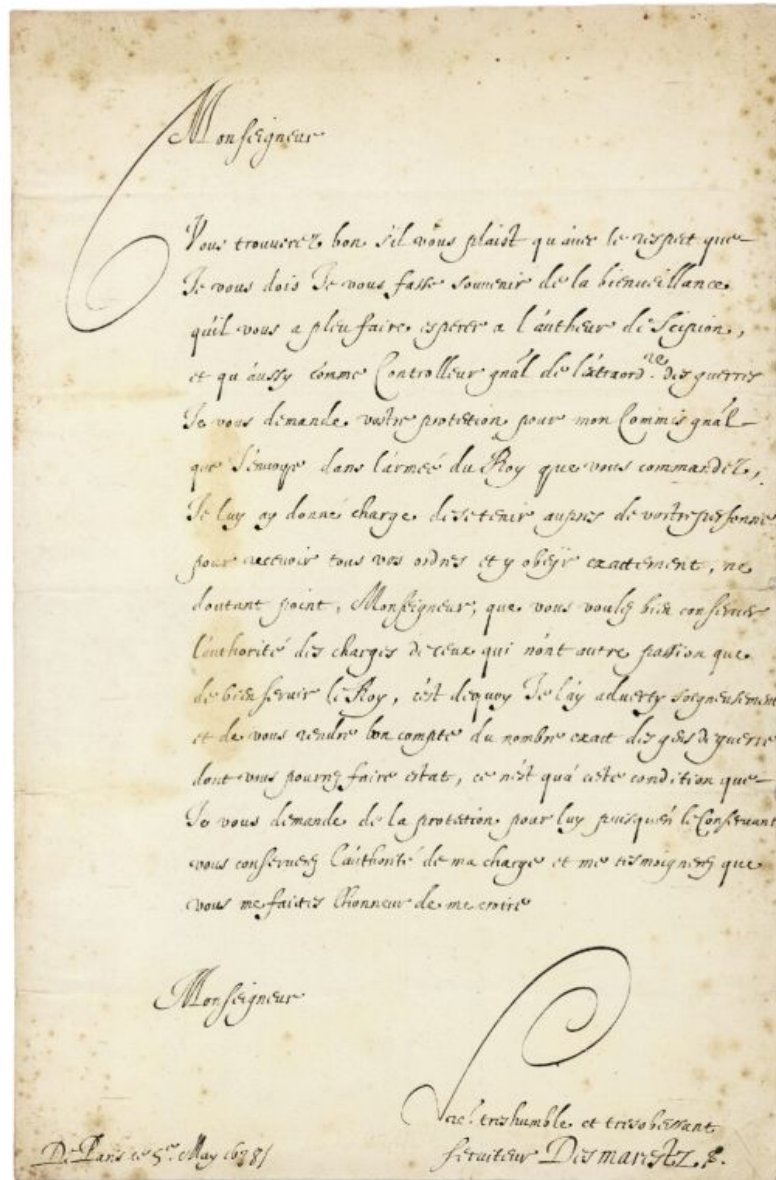 Monseigneur
Vous trouverez bon s'il vous plaist qu'avec le respect que
Je vous dois Je vous fasse souvenir de la bienueillance
qu'il vous a pleu faire esperer a l'autheur de Scipion,
et qu'aussy comme Controlleur gnâl de l'extraord.re des guerres
Je vous demande vostre protetion pour mon Commis gnâl
que J'envoye dans l'armeé du Roy que vous commandez,
Je luy ay donné charge de se tenir aupres de vostre personne
pour recevoir tous vos ordres et y obeÿr exactement, ne
doutant point, Monseigneur, que vous voulez bien conseruer
l'authorité des charges de ceux qui n'ont autre passion que
de bien seruir le Roy, c'est dequoy Je l'ay aduerty soigneusement
et de vous rendre bon compte du nombre exact des gens de guerre
dont vous pourrez faire estat, ce n'est qu'a ceste condition que
Je vous demande de la protetion pour luy puisqu'en le Conseruant
vous conseruerez l'authorité de ma charge et me tesmoignerez que
vous me faites l'honneur de me croire
Monseigneur
tres humble et tresobeissant
De Paris ce 5.e May
seruiteur Desmarestz